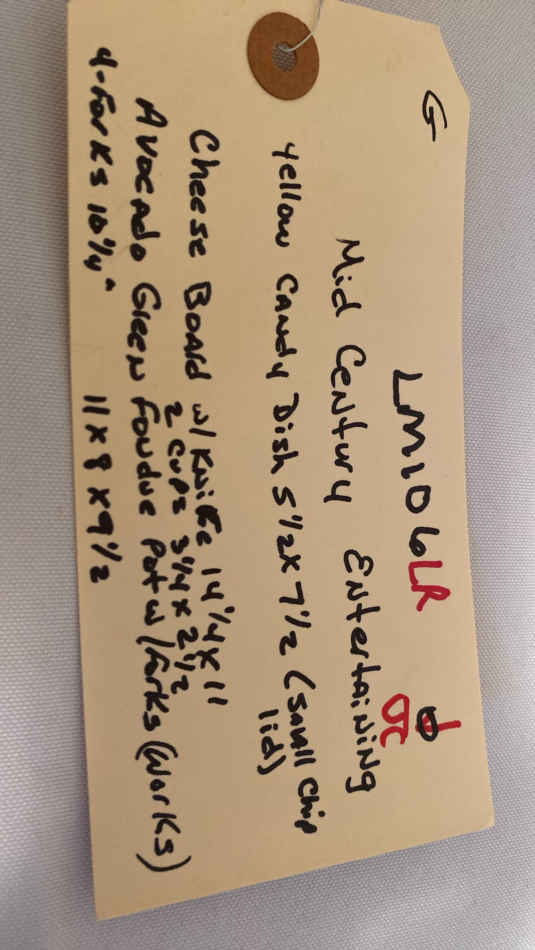 G
LM106LR J
JC
Mid Century Entertaining
Yellow Candy Dish 5 1/2 x 7 1/2 (small chip
lid)
Cheese Board w/ Knife 14 1/4 x 11
2 cups 3 1/4 x 2 1/2
Avocado Green Fondue Pot w/ Forks (works)
4-Forks 10 1/4" 11 x 8 x 9 1/2